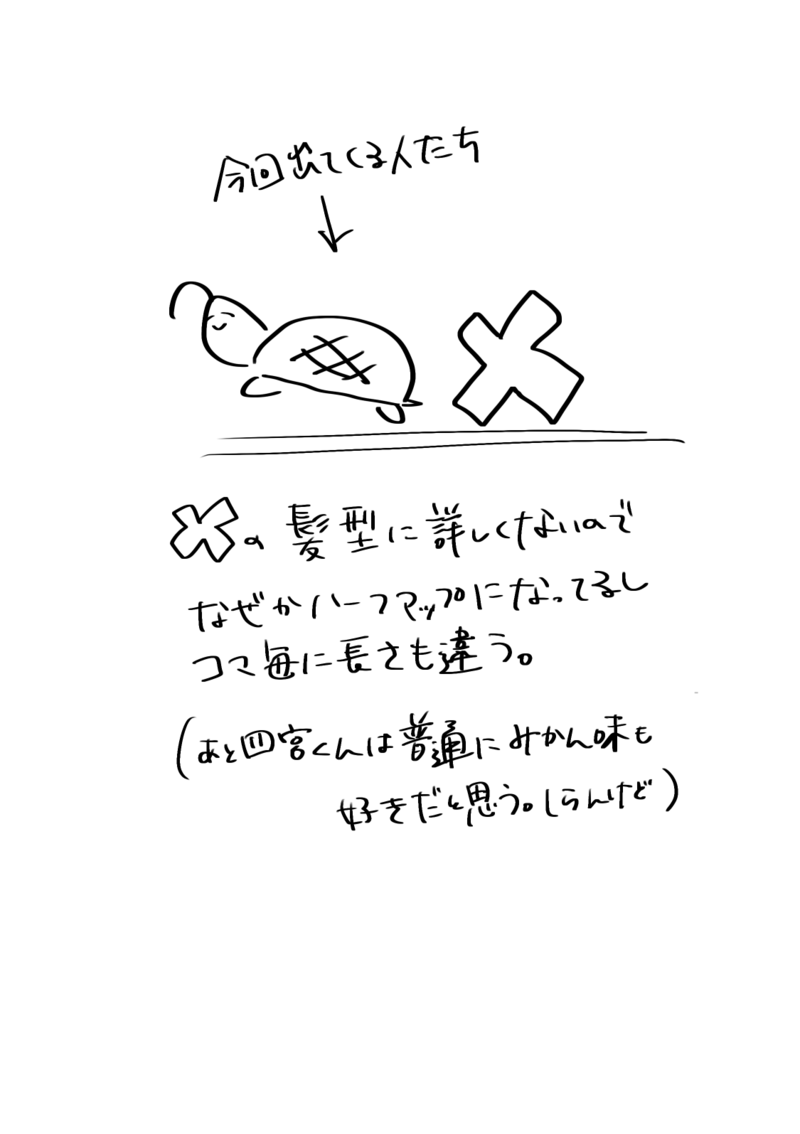 今回出てくる人たち
の髪型に詳しくないので
なぜかハーフアップになってるし
コマ毎に長さも違う。
(あと四宮くんは普通にみかん味も
好きだと思う。しらんけど)